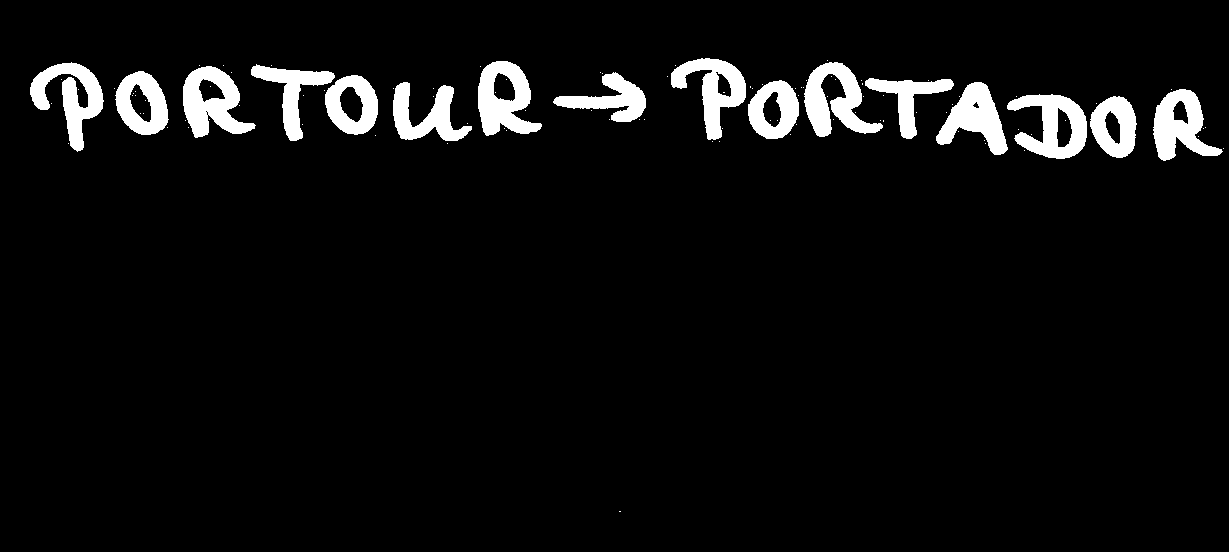 PORTOUR → PORTADOR